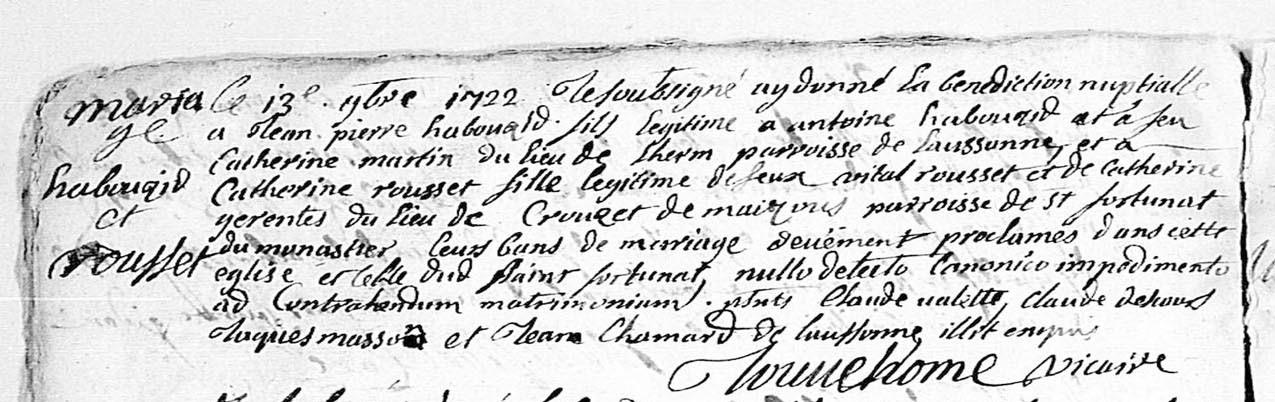 maria
ge
habouzid
et
rousset
le 13e. 9bre 1722 Je soubsigné ay donné la benediction nuptialle
a Jean pierre habouzid. fils legitime a antoine habouzid et a feu
Catherine martin du lieu de therm parroisse de laussonne, et a
Catherine rousset fille legitime de feux vital rousset et de Catherine
gerentes du lieu de Crouzet de maizous parroisse de st fortunat
du monastier leurs bans de mariage deüement proclames dans cette
eglise et celle dud saint fortunat, nullo detecto Canonico impedimento
ad Contrahendum matrimonium. pnts Claude valette, Claude dehours
Jaques masson et Jean Chamard de laussonne illit enquis
Jouuehome vicaire